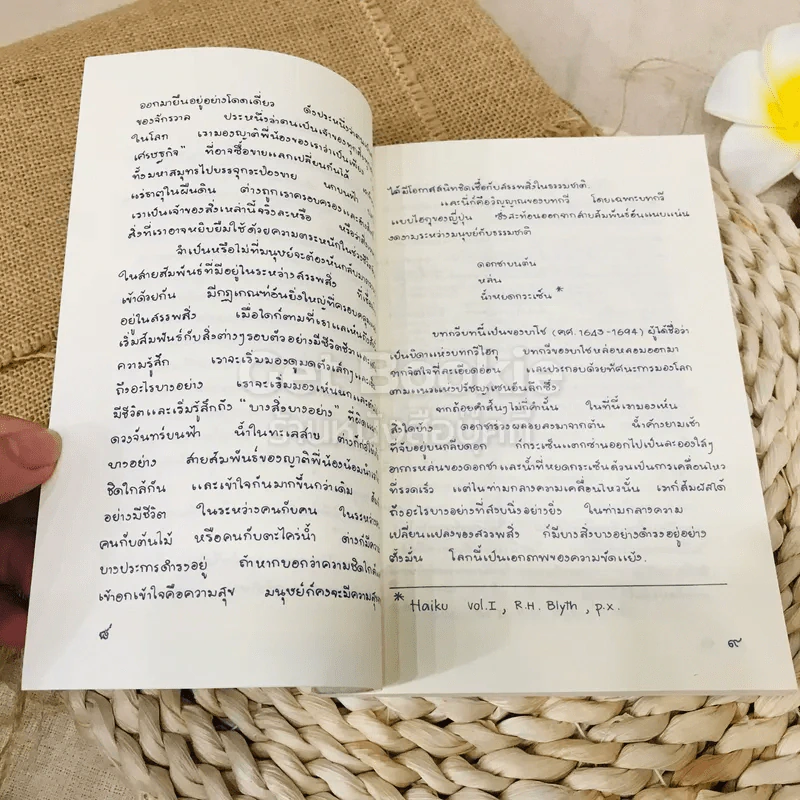 ออกมายืนอยู่อย่างโดดเดี่ยว ดั่งประหนึ่งว่า
ของจักรวาล ประหนึ่งว่าตนเป็นเจ้าของทุกสิ่ง
ในโลก เรามองญาติพี่น้องของเราว่าเป็นเพียง
เศรษฐกิจ" ที่อาจซื้อขายแลกเปลี่ยนกันได้
ทั้งมหาสมุทรไปบรรจุกระป๋องขาย นกบนฟ้า
แร่ธาตุในผืนดิน ต่างถูกเราครอบครองและ
เราเป็นเจ้าของสิ่งเหล่านี้จริงละหรือ หรือว่า
สิ่งที่เราอาจหยิบยืมใช้ด้วยความตระหนักในช่วง
จำเป็นหรือไม่ที่มนุษย์จะต้องหันกลับมา
ในสายสัมพันธ์ที่มีอยู่ในระหว่างสรรพสิ่ง
เข้าด้วยกัน มีกฏเกณฑ์อันยิ่งใหญ่ที่ครอบคลุม
อยู่ในสรรพสิ่ง เมื่อใดก็ตามที่เราแลเห็น
เริ่มสัมพันธ์กับสิ่งต่างๆรอบตัวอย่างมีชีวิตชีวา
ความรู้สึก เราจะเริ่มมองดูมดตัวเล็กๆและ
ถึงอะไรบางอย่าง เราจะเริ่มมองเห็นนก
มีชีวิตและเริ่มรู้สึกถึง "บางสิ่งบางอย่าง" ที่
ดวงจันทร์บนฟ้า น้ำในทะเลสาบ ต่างก็
บางอย่าง สายสัมพันธ์ของญาติพี่น้องน้อมนำ
ชิดใกล้กัน และเข้าใจกันมากขึ้นกว่าเดิม
อย่างมีชีวิต ในระหว่างคนกับคน ในระหว่าง
คนกับต้นไม้ หรือคนกับตะไคร่น้ำ ต่างก็มีความ
บางประการดำรงอยู่ ถ้าหากบอกว่าความชิดใกล้
เข้าอกเข้าใจคือความสุข มนุษย์ก็คงจะมีความสุข
๘
ได้มีโอกาสสนิทชิดเชื้อกับสรรพสิ่งในธรรมชาติ.
และนี่ก็คือวิญญาณของบทกวี โดยเฉพาะบทกวี
แบบไฮกุของญี่ปุ่น ซึ่งสะท้อนออกจากสายสัมพันธ์อันแนบแน่น
งดงามระหว่างมนุษย์กับธรรมชาติ
ดอกชาบนต้น
หล่น
น้ำหยดกระเซ็น *
บทกวีบทนี้เป็นของบาโช (คศ. 1643-1694) ผู้ได้ชื่อว่า
เป็นบิดาแห่งบทกวีไฮกุ บทกวีของบาโชหล่อหลอมออกมา
จากจิตใจที่ละเอียดอ่อน และประกอบด้วยทัศนะการมองโลก
ตามแนวแห่งปรัชญาเซนอันลึกซึ้ง.
จากถ้อยคำสั้นๆไม่กี่คำนั้น ในที่นี้เรามองเห็น
สิ่งใดบ้าง ดอกชาร่วงผล็อยลงมาจากต้น น้ำค้างยามเช้า
ที่จับอยู่บนกลีบดอก ก็กระเซ็นแตกซ่านออกไปเป็นละอองใสๆ
อาการหล่นของดอกชา และน้ำที่หยดกระเซ็นล้วนเป็นการเคลื่อนไหว
ที่รวดเร็ว แต่ในท่ามกลางความเคลื่อนไหวนั้น เราก็สัมผัสได้
ถึงอะไรบางอย่างที่สงบนิ่งอย่างยิ่ง ในท่ามกลางความ
เปลี่ยนแปลงของสรรพสิ่ง ก็มีบางสิ่งบางอย่างดำรงอยู่อย่าง
ตั้งมั่น โลกนี้เป็นเอกภาพของความขัดแย้ง.
* Haiku vol.I, R.H. Blyth, p.x.
๙